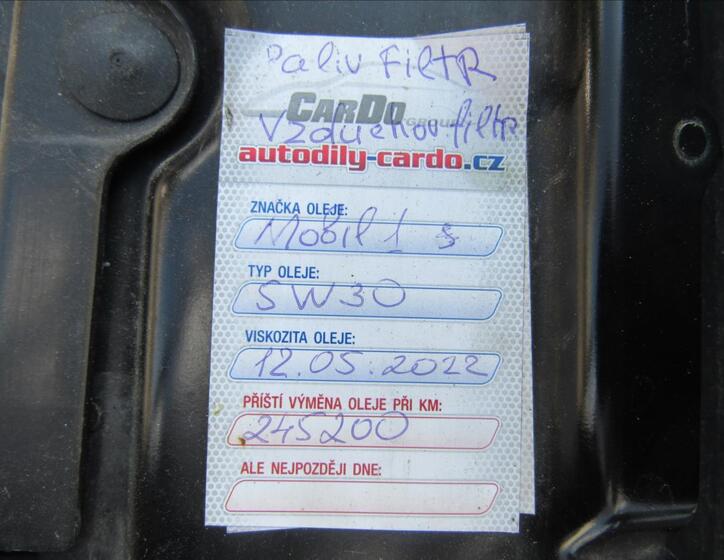 Paliv Filtr
CARDO GROUP
Vzduchov filtr
autodily-cardo.cz
ZNAČKA OLEJE:
Mobil 1 s
TYP OLEJE:
5W30
VISKOZITA OLEJE:
12.05.2022
PŘÍŠTÍ VÝMĚNA OLEJE PŘI KM:
245200
ALE NEJPOZDĚJI DNE: